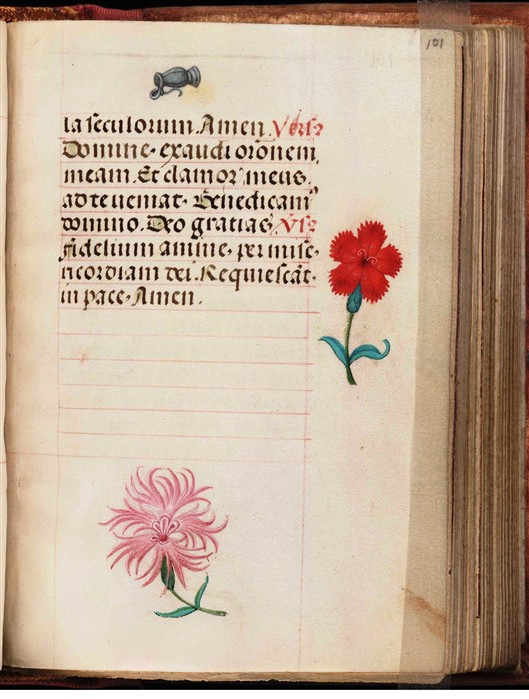 101
la seculorum. Amen. Vers?
Domine. exaudi orōnem
meam. Et clamor meus.
ad te veniat. Benedicam⁹
domino. Deo gratias. Vs?
fidelium anime. per mise-
ricordiam dei. Requiescāt.
in pace. Amen.